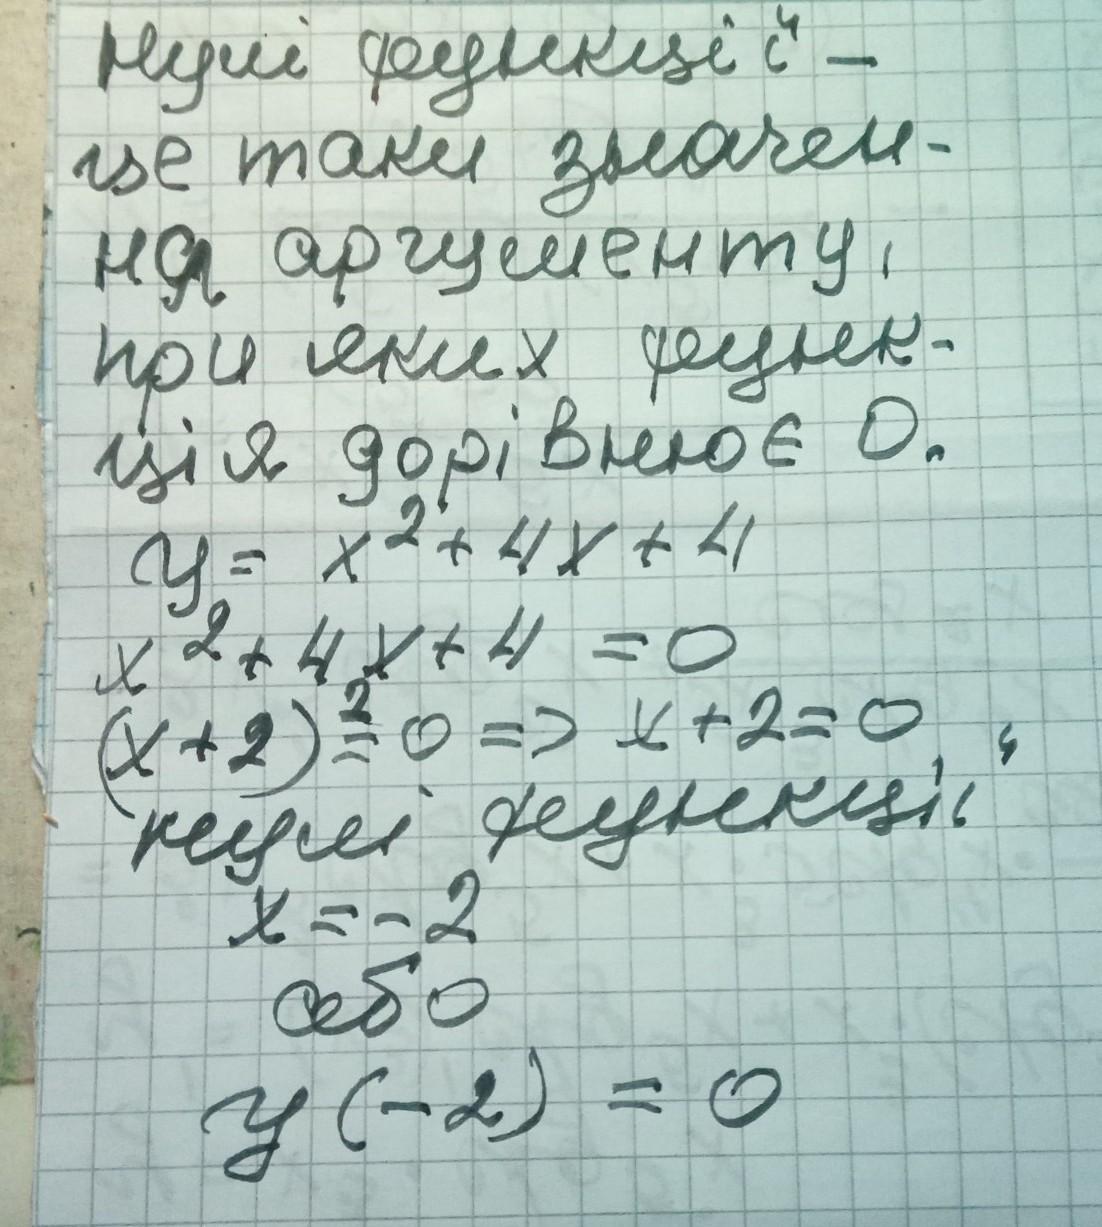 нулі функції –
це таки значен-
ня аргументу,
при яких функ-
ція дорівнює 0.
y = x² + 4x + 4
x² + 4x + 4 = 0
(x + 2)² = 0 => x + 2 = 0
нулі функції
x = -2
або
y(-2) = 0